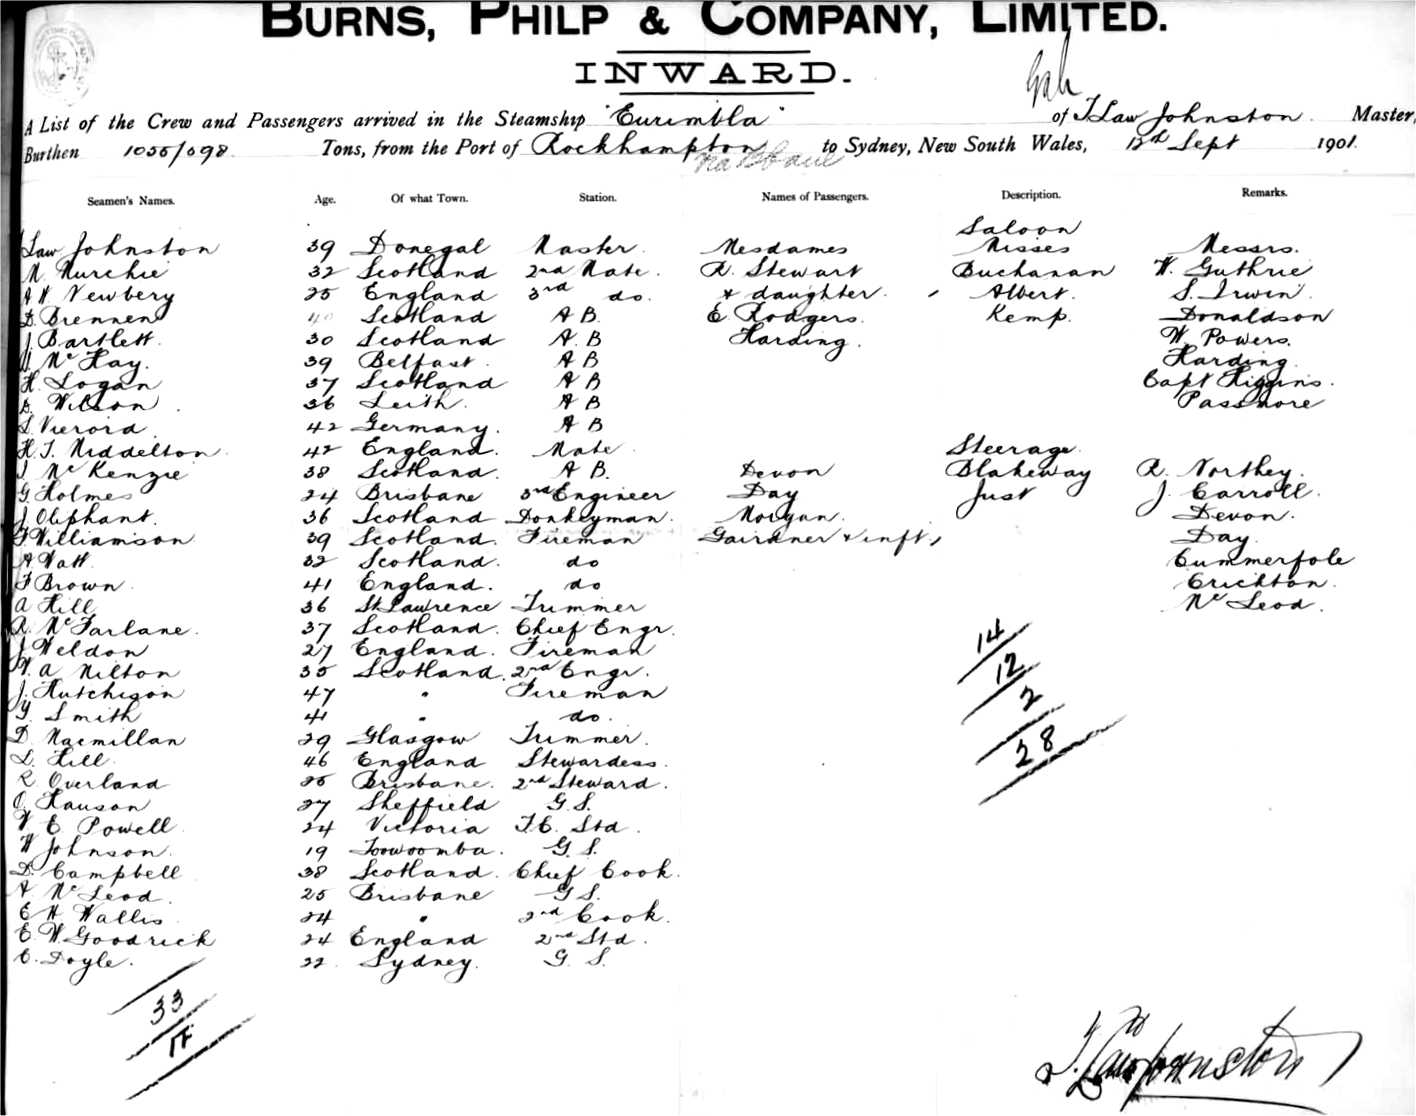 BURNS, PHILP & COMPANY, LIMITED.
INWARD.
A List of the Crew and Passengers arrived in the Steamship "Eurimbla" of T Law Johnston. Master,
Burthen 1055/698 Tons, from the Port of Rockhampton to Sydney, New South Wales, 12th Sept 1901.
Seamen's Names. Age. Of what Town. Station. Names of Passengers. Description. Remarks.
Saloon
Law Johnston 39 Donegal Master. Mesdames Misses Messrs.
M. Murchie 32 Scotland 2nd Mate. R. Stewart Buchanan W. Guthrie
A W. Newbery 25 England 3rd do. & daughter. Albert. S. Irwin.
D. Brennen 40 Scotland A B. E Rodgers. Kemp. Donaldson
J. Bartlett. 30 Scotland A. B Harding. W. Powers.
Mc Kay. 39 Belfast. A B Harding.
H. Logan 37 Scotland A B Capt Higgins.
D. Wilson. 36 Leith. A B Passmore
S. Vieroid. 42 Germany. A B
H. T. Middelton. 42 England. Mate Steerage.
J Mc Kenzie 38 Scotland. A B. Devon Blakeway R. Northey.
G. Holmes 24 Brisbane 3rd Engineer Day Just J. Carroll.
J Oliphant. 36 Scotland Donkeyman. Morgan. Devon.
F Williamson 39 Scotland. Fireman Gairdner & inft, Day.
A Watt. 32 Scotland. do Cummerfole
F Brown. 41 England. do Crichton.
A Hill 36 St Lawrence Trimmer Mc Leod.
R. McFarlane. 37 Scotland. Chief Engr.
J Weldon 27 England. Fireman
W. A Milton 35 Scotland. 2nd Engr.
J. Hutchison 47 " Fireman
G. Smith 41 " do.
D. Macmillan 29 Glasgow Trimmer.
L. Hill. 46 England Stewardess.
R Overland 25 Brisbane. 2nd Steward.
O. Hanson 27 Sheffield G. S.
W E Powell. 24 Victoria F. C. Std.
W Johnson. 19 Toowoomba. G. S.
D. Campbell 38 Scotland. Chief Cook.
A. Mc Leod. 25 Brisbane G S.
E H Wallis 24 " 2nd Cook.
E. W. Goodrick 24 England 2nd Std.
C. Doyle. 22. Sydney. G. S.
14
12
2
28
33
17
T. Law Johnston